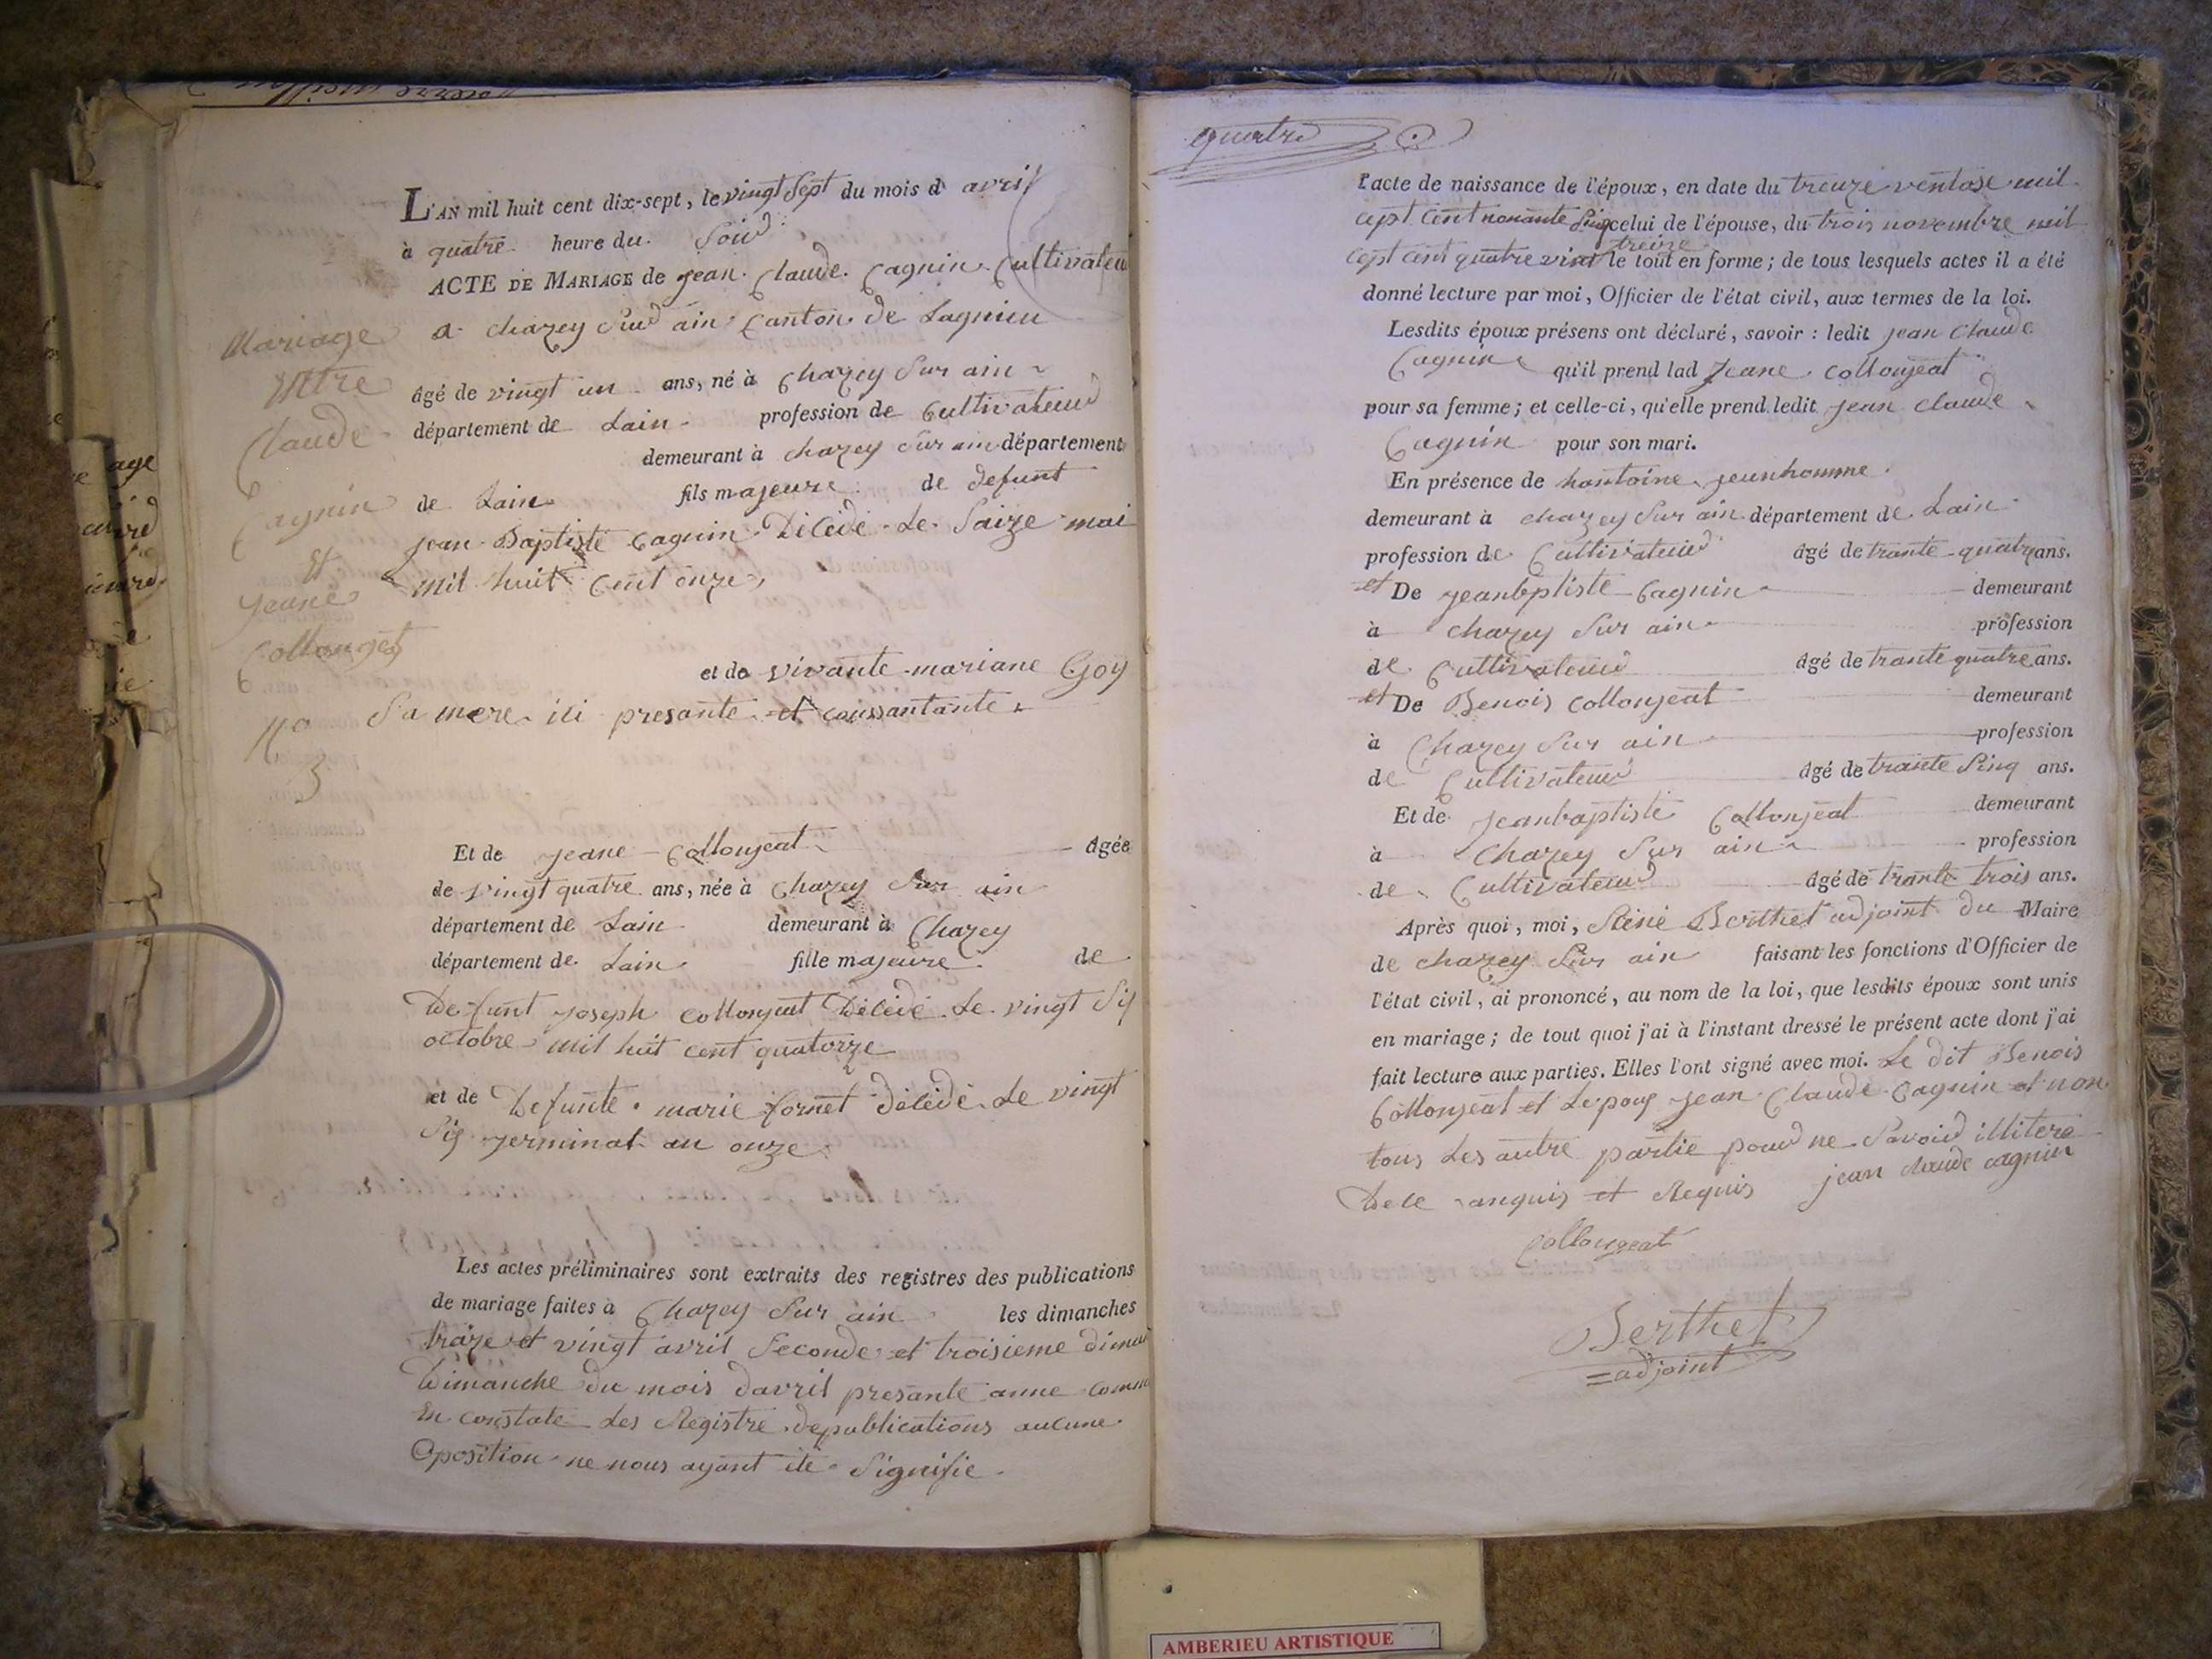 L'AN mil huit cent dix-sept, le vingt Sept du mois d avril
à quatre heure du Soir
ACTE DE MARIAGE de jean Claude Cagnin Cultivateur
a chazey Sur ain Canton de Lagnieu
Mariage
Entre
Claude
Cagnin
Et
Jeane
Collonget
No
3
âgé de vingt un ans, né à Chazey Sur ain
département de Lain profession de Cultivateur
demeurant à chazey Sur ain département
de Lain fils majeure de defunt
jean Baptiste Cagnin Décédé Le Saize mai
mil huit Cent onze
et de vivante mariane Goy
Sa mere ici presante et conssantante
Et de jeane Collonjeat âgée
de vingt quatre ans, née à Chazey Sur ain
département de Lain demeurant à Chazey
département de Lain fille majeure de
Defunt joseph Collonjeat Décédé Le vingt Six
octobre mil huit cent quatorze
et de Defunte marie fornet décédé Le vingt
Six germinal an onze
Les actes préliminaires sont extraits des registres des publications
de mariage faites à Chazey Sur ain les dimanches
traize et vingt avril Seconde et troisieme
Dimanche du mois davril presante anne
En constate Les Registre depublications aucune
Oposition ne nous ayant été Signifie
quatre
l'acte de naissance de l'époux, en date du treuze ventose mil
cept Cent nonante Sinq celui de l'épouse, du trois novembre mil
treize
cept cent quatre vint le tout en forme; de tous lesquels actes il a été
donné lecture par moi, Officier de l'état civil, aux termes de la loi.
Lesdits époux présens ont déclaré, savoir : ledit jean Claude
Cagnin qu'il prend lad Jeane Collonjeat
pour sa femme; et celle-ci, qu'elle prend ledit jean claude
Cagnin pour son mari.
En présence de hantoine jeunhomme
demeurant à chazey Sur ain département de Lain
profession de Cultivateur âgé de trante quatre ans.
et De jeanbptiste Cagnin demeurant
à chazey Sur ain profession
de Cultivateur âgé de trante quatre ans.
et De Benois Collonjeat demeurant
à Chazey Sur ain profession
de Cultivateur âgé de trante Sinq ans.
Et de jeanbaptiste Collonjeat demeurant
à Chazey Sur ain profession
de Cultivateur âgé de trante trois ans.
Après quoi, moi, Réné Berthet adjoint du Maire
de chazey Sur ain faisant les fonctions d'Officier de
l'état civil, ai prononcé, au nom de la loi, que lesdits époux sont unis
en mariage; de tout quoi j'ai à l'instant dressé le présent acte dont j'ai
fait lecture aux parties. Elles l'ont signé avec moi. Le dit Benois
Collonjeat et Lepoux jean Claude Cagnin et non
tous Les autre partie pour ne Savoir illitere
De ce anquis et Requis jean claude cagnin
Collonjeat
Berthet
adjoint
AMBERIEU ARTISTIQUE